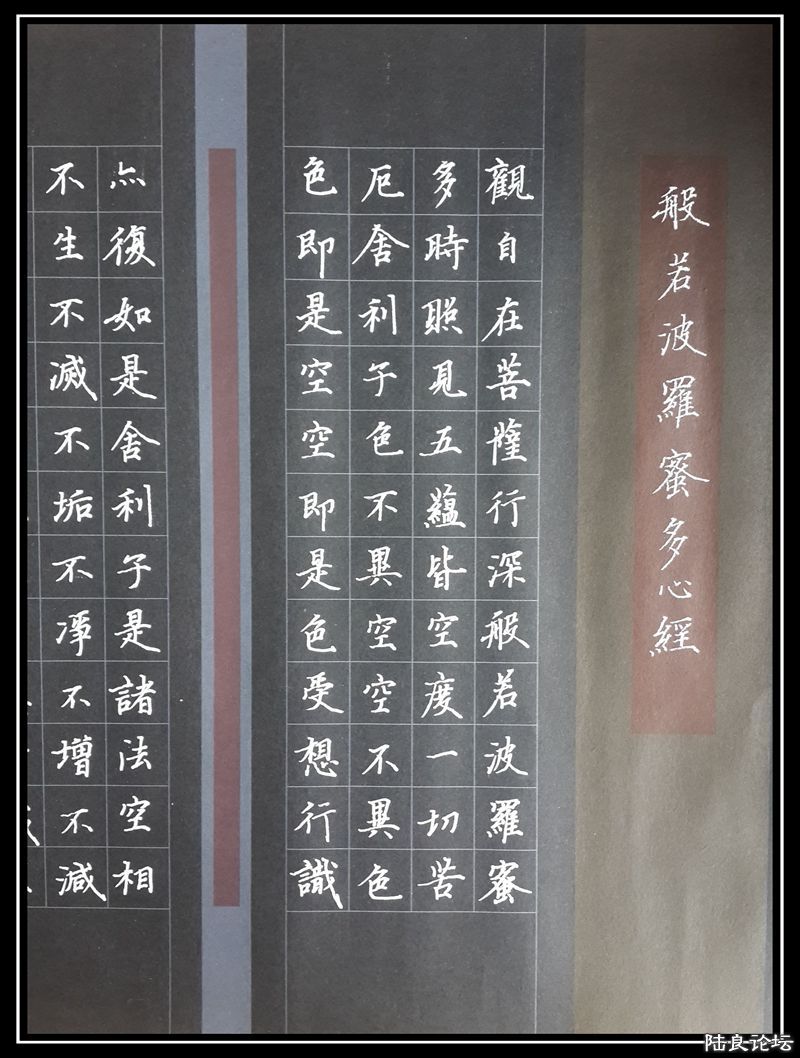 般若波羅蜜多心經
觀自在菩薩行深般若波羅蜜
多時照見五蘊皆空度一切苦
厄舍利子色不異空空不異色
色即是空空即是色受想行識
亦復如是舍利子是諸法空相
不生不滅不垢不凈不增不減
陆良论坛